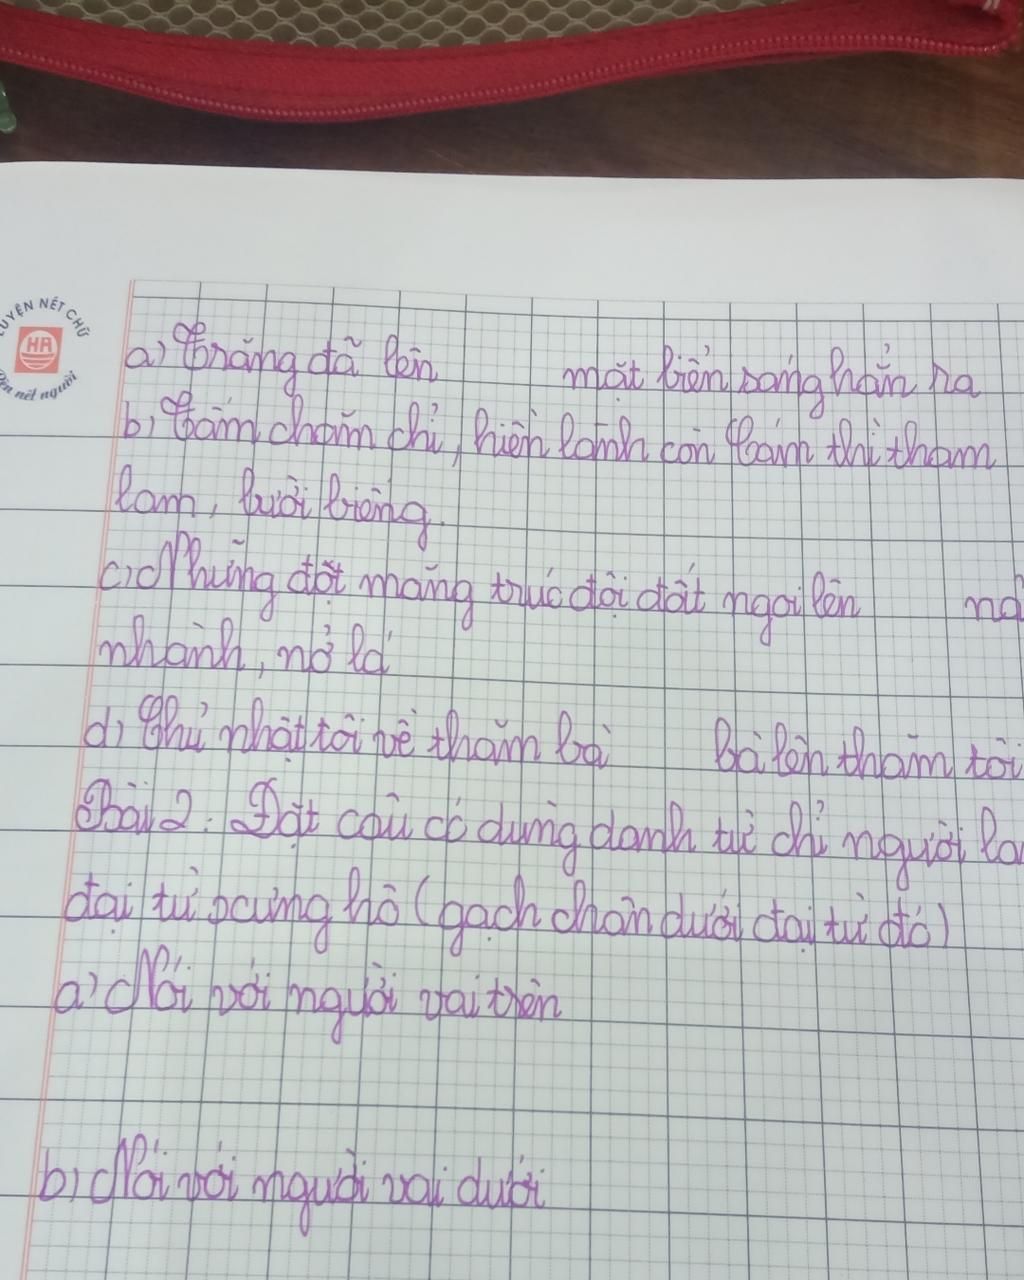 LUYỆN NÉT CHỮ
HA
Rèn nết người
a) Trăng đã lên mặt biển sáng hẳn ra
b) Tấm chăm chỉ, hiền lành còn Cám thì tham
lam, lười biếng.
c) Những đốt măng trúc đội đất ngoi lên
nhành, nở lá
d) Chủ nhật tôi về thăm bà Bà lên thăm tôi
Bài 2: Đặt câu có dùng danh từ chỉ người
đại từ xưng hô (gạch chân dưới đại từ đó)
a) Nói với người vai trên
b) Nói với người vai dưới